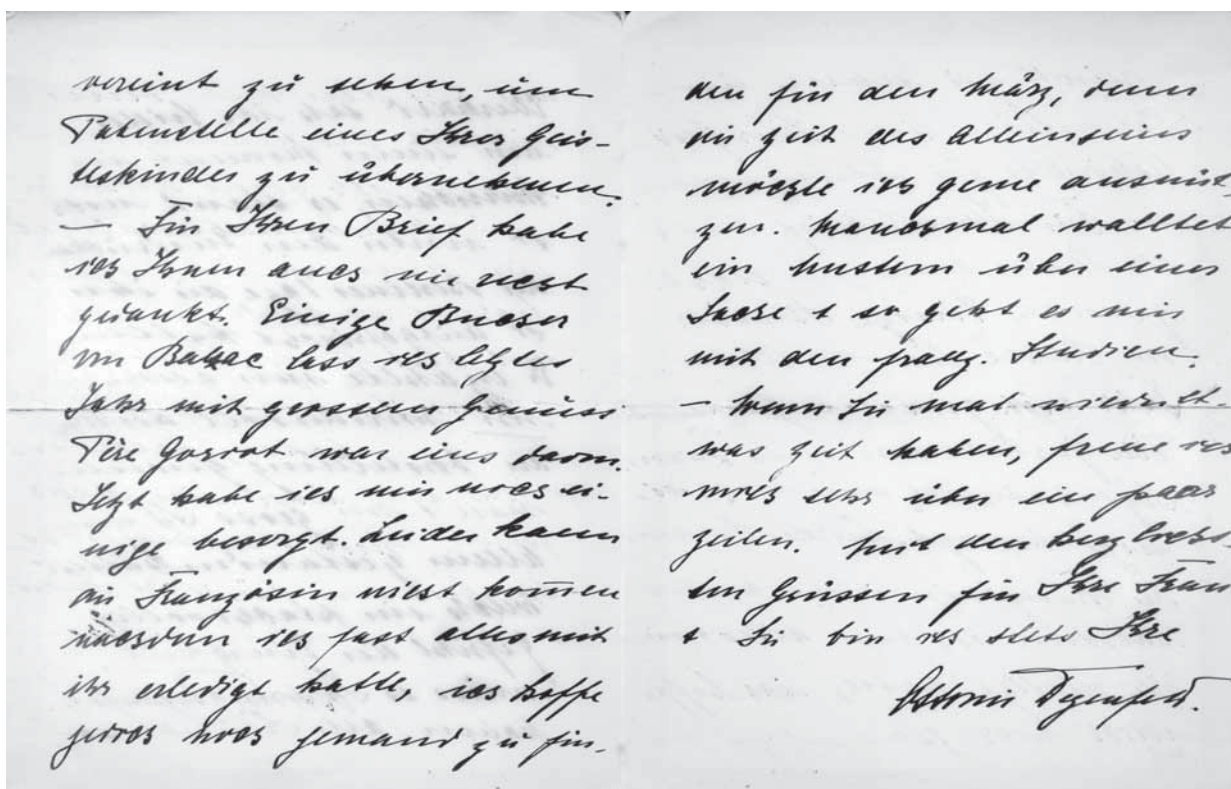 vereint zu sehen, um
Patenstelle eines Ihrer Geis-
teskinder zu übernehmen.
— Für Ihren Brief habe
ich Ihnen auch nie recht
gedankt. Einige Bücher
von Balzac lass ich letztes
Jahr mit grossem Genuss
Père Goriot war eins davon.
Jetzt habe ich mir noch ei-
nige besorgt. Leider kann
die Französin nicht kommen
nachdem ich fast alles mit
ihr erledigt hatte, ich hoffe
jedoch noch jemand zu fin-
den für den März, denn
die Zeit des Alleinseins
möchte ich gerne ausnüt
zen. Manchmal walltet
ein über einer
Sache + so geht es mir
mit den franz. Studien.
— Wenn Sie mal wieder et-
was Zeit haben, freue ich
mich sehr über ein paar
Zeilen. Mit den herzlichs-
ten Grüssen für Ihre Frau
+ Sie bin ich stets Ihre
Ottonie Degenfeld.